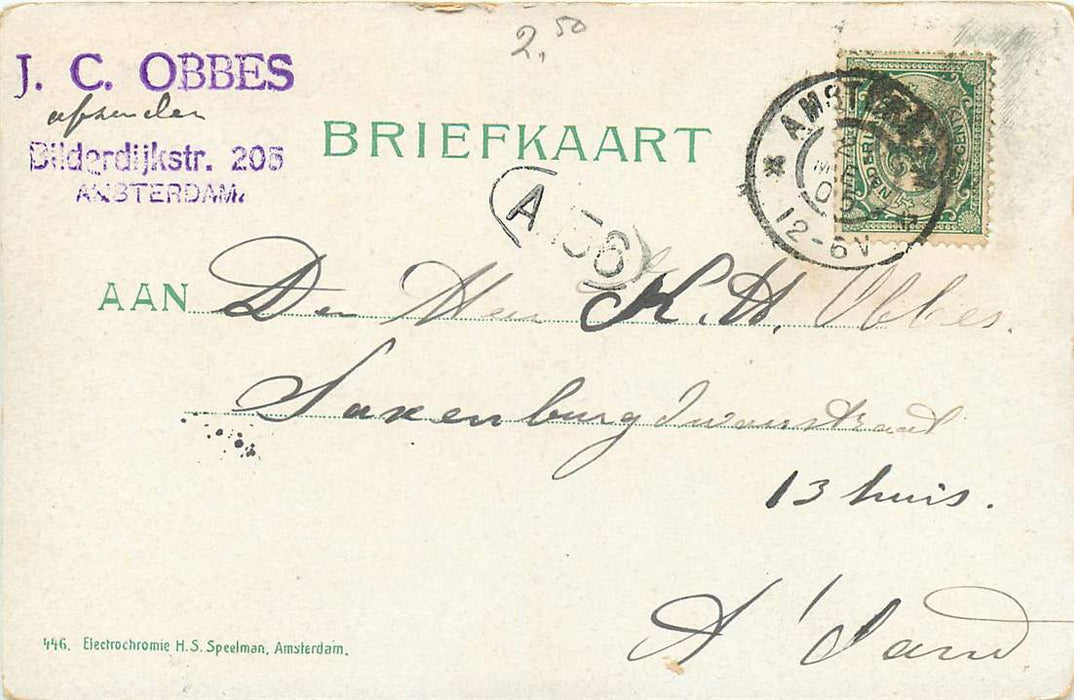 2,50
J. C. OBBES
afzender
Bilderdijkstr. 205
AMSTERDAM.
BRIEFKAART
AMSTERDAM
12-6V
A 56
AAN Den Heer K. H. Obbes.
Saxenburgdwarsstraat
13 huis.
A'dam
446. Electrochromie H. S. Speelman, Amsterdam.